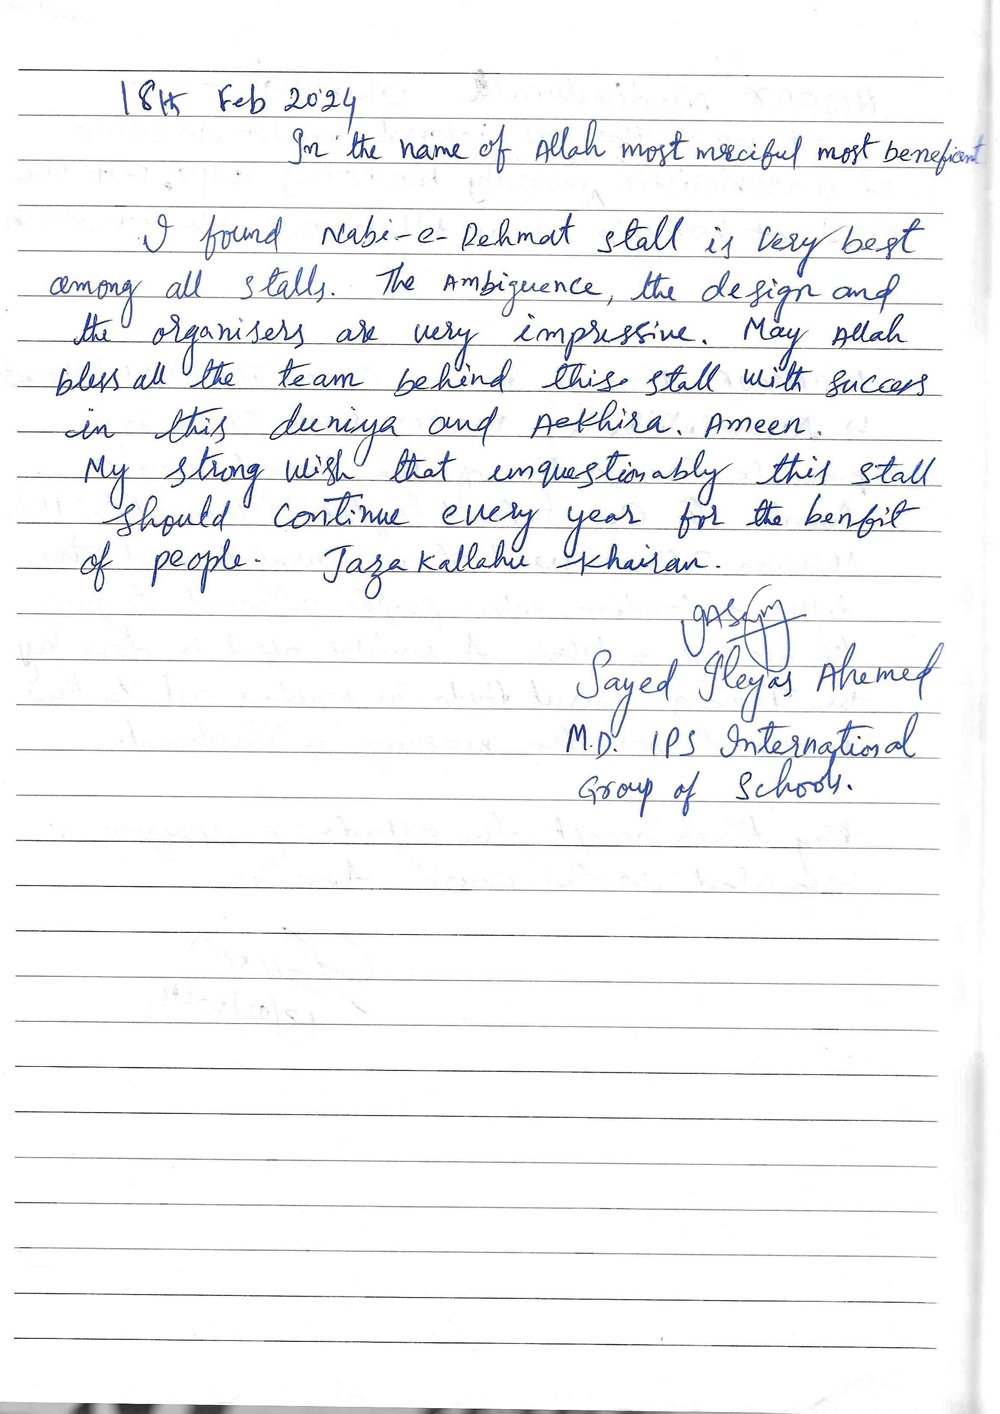 18th Feb 2024
In the name of Allah most merciful most beneficent
I found Nabi-e-Rehmat stall is very best
among all stalls. The Ambiguence, the design and
the organisers are very impressive. May Allah
bless all the team behind this stall with success
in this duniya and Aekhira. Ameen.
My strong wish that unquestionably this stall
should continue every year for the benfit
of people. Jaza Kallahu Khairan.
Sayed Ileyas Ahemed
M.D. IPS International
Group of Schools.